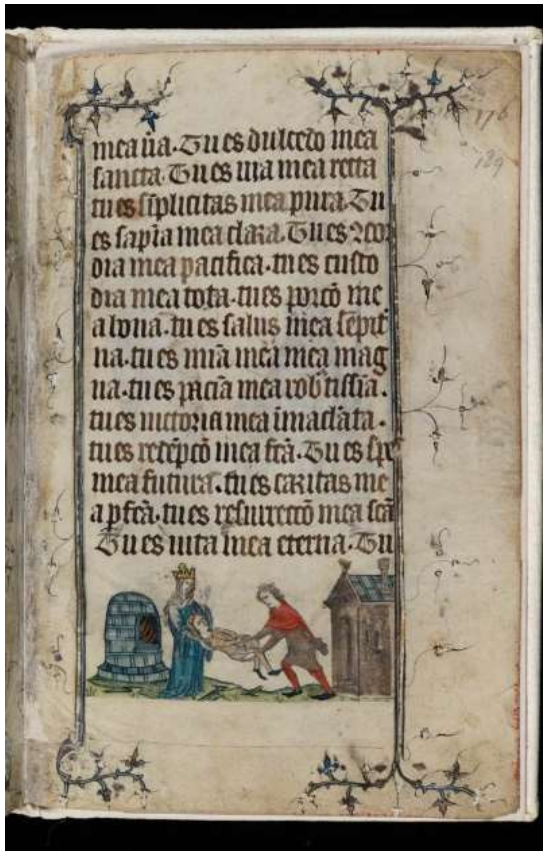 mea ũa. Tu es dulcedo mea
sancta. Tu es uia mea recta
tu es sĩplicitas mea pura. Tu
es sapĩa mea clara. Tu es ꝯcor
dia mea pacifica. tu es custo
dia mea tota. tu es porcõ me
a bona. tu es salus mea sẽpit̾
na. tu es mĩa mea mea mag
na. tu es paciã mea rob̾tissĩa.
tu es uictoria mea ĩmaclãta.
tu es redẽpcõ mea fcã. Tu es spes
mea futura. tu es caritas me
a ꝑfcã. tu es resurreccõ mea scã
Tu es uita mea eterna. Tu
176
189